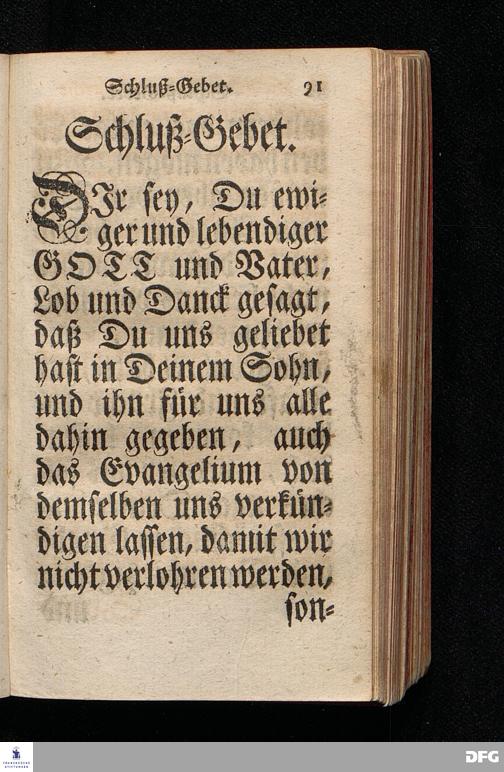 Schluß-Gebet. 91
Schluß-Gebet.
DIr sey, Du ewi-
ger und lebendiger
GOTT und Vater,
Lob und Danck gesagt,
daß Du uns geliebet
hast in Deinem Sohn,
und ihn für uns alle
dahin gegeben, auch
das Evangelium von
demselben uns verkün-
digen lassen, damit wir
nicht verlohren werden,
son-
FRANCKESCHE
STIFTUNGEN
DFG